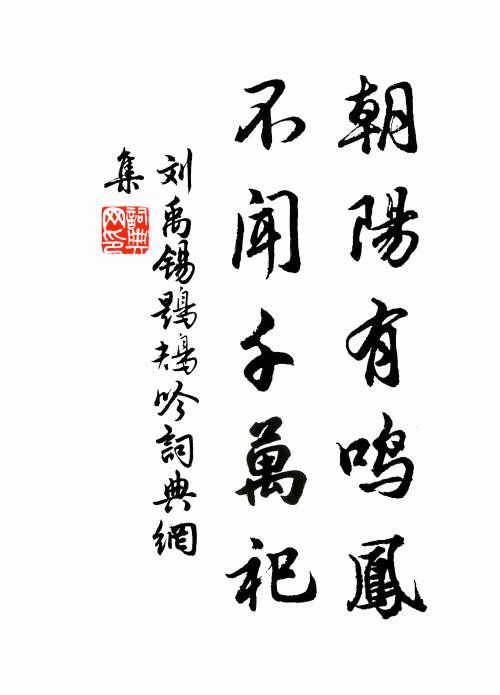 朝陽有鳴鳳
不聞千萬祀
刘禹锡鶗鴂吟詞典網
集
詞典
网印